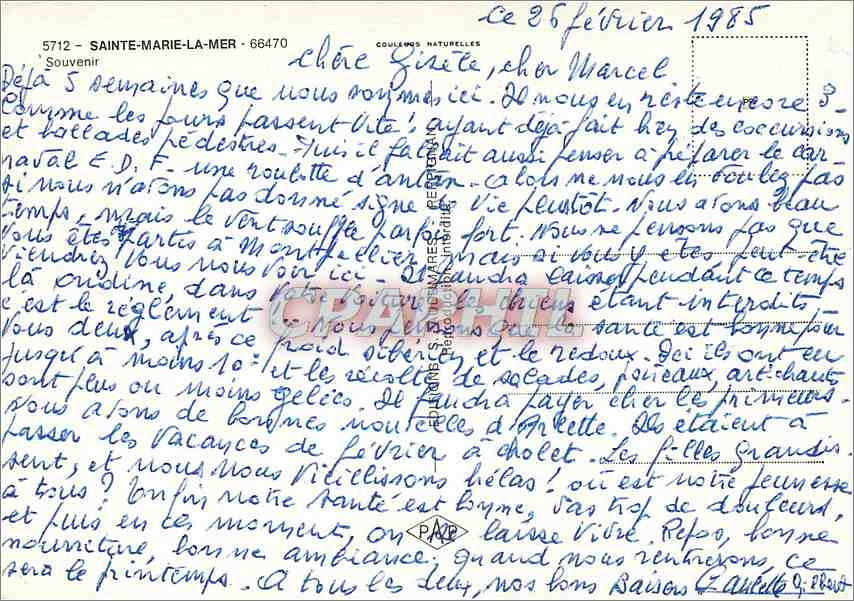 ce 26 février 1985
5712 - SAINTE-MARIE-LA-MER - 66470
COULEURS NATURELLES
Souvenir
chère Gisèle, cher Marcel
Déjà 5 semaines que nous sommes ici. Il nous en reste encore 3-
Comme les jours passent vite! ayant déjà fait bien des excursions
et ballades pédestres. Puis il fallait aussi penser à préparer le car-
naval E.D.F. une roulotte d'antan. alors ne nous en voulez pas
si nous n'avons pas donné signe de vie plustôt. Nous avons beau
temps, mais le vent souffle parfois fort. Nous ne pensons pas que
vous êtes partis à Montpellier, mais si vous y êtes peut-être
viendrez vous nous voir ici. Il faudra laisser pendant ce temps
là dans votre voiture les chiens étant interdits
c'est le règlement. Nous pensons que la santé est bonne pour
vous deux, après ce froid sibérien et le redoux. Ici ils ont eu
jusqu'à moins 10° et les récoltes de salades, poireaux, artichauts
sont plus ou moins gelées. Il faudra payer cher les primeurs.
Nous avons de bonnes nouvelles d'Arlette. Ils étaient à
passer les vacances de février à cholet. Les filles grandis-
sent, et nous nous vieillissons hélas! où est notre jeunesse
à tous? Enfin notre santé est bonne, pas trop de douleurs,
et puis en ces moment, on se laisse vivre. Repos, bonne
nourriture, bonne ambiance. Quand nous rentrerons, ce
sera le printemps. A tous les deux, nos bons Baisers
EDITIONS S.L. DUPEN MARES - PERPIGNAN
Reproduction interdite
CPARHIL
PAP